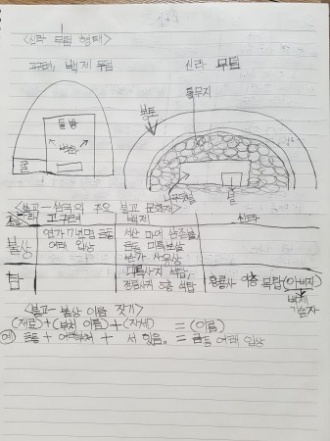 <신라 무덤 형태>
고구려, 백제 무덤
신라 무덤
돌무지
돌방
봉토
벽화
굴
널
<불교-삼국의 주요 불교 문화재>
고구려
백제
신라
불상
연가 7년명 금동
여래 입상
서산 마애 삼존불,
금동 미륵보살
반가 사유상
탑
미륵사지 석탑,
정림사지 5층 석탑
황룡사 9층 목탑 (아비지)
백제
기술자
<불교-불상 이름 짓기>
(재료)+(부처 이름)+(자세) = (이름)
예) 금동 + 여래부처 + 서 있음. = 금동 여래 입상